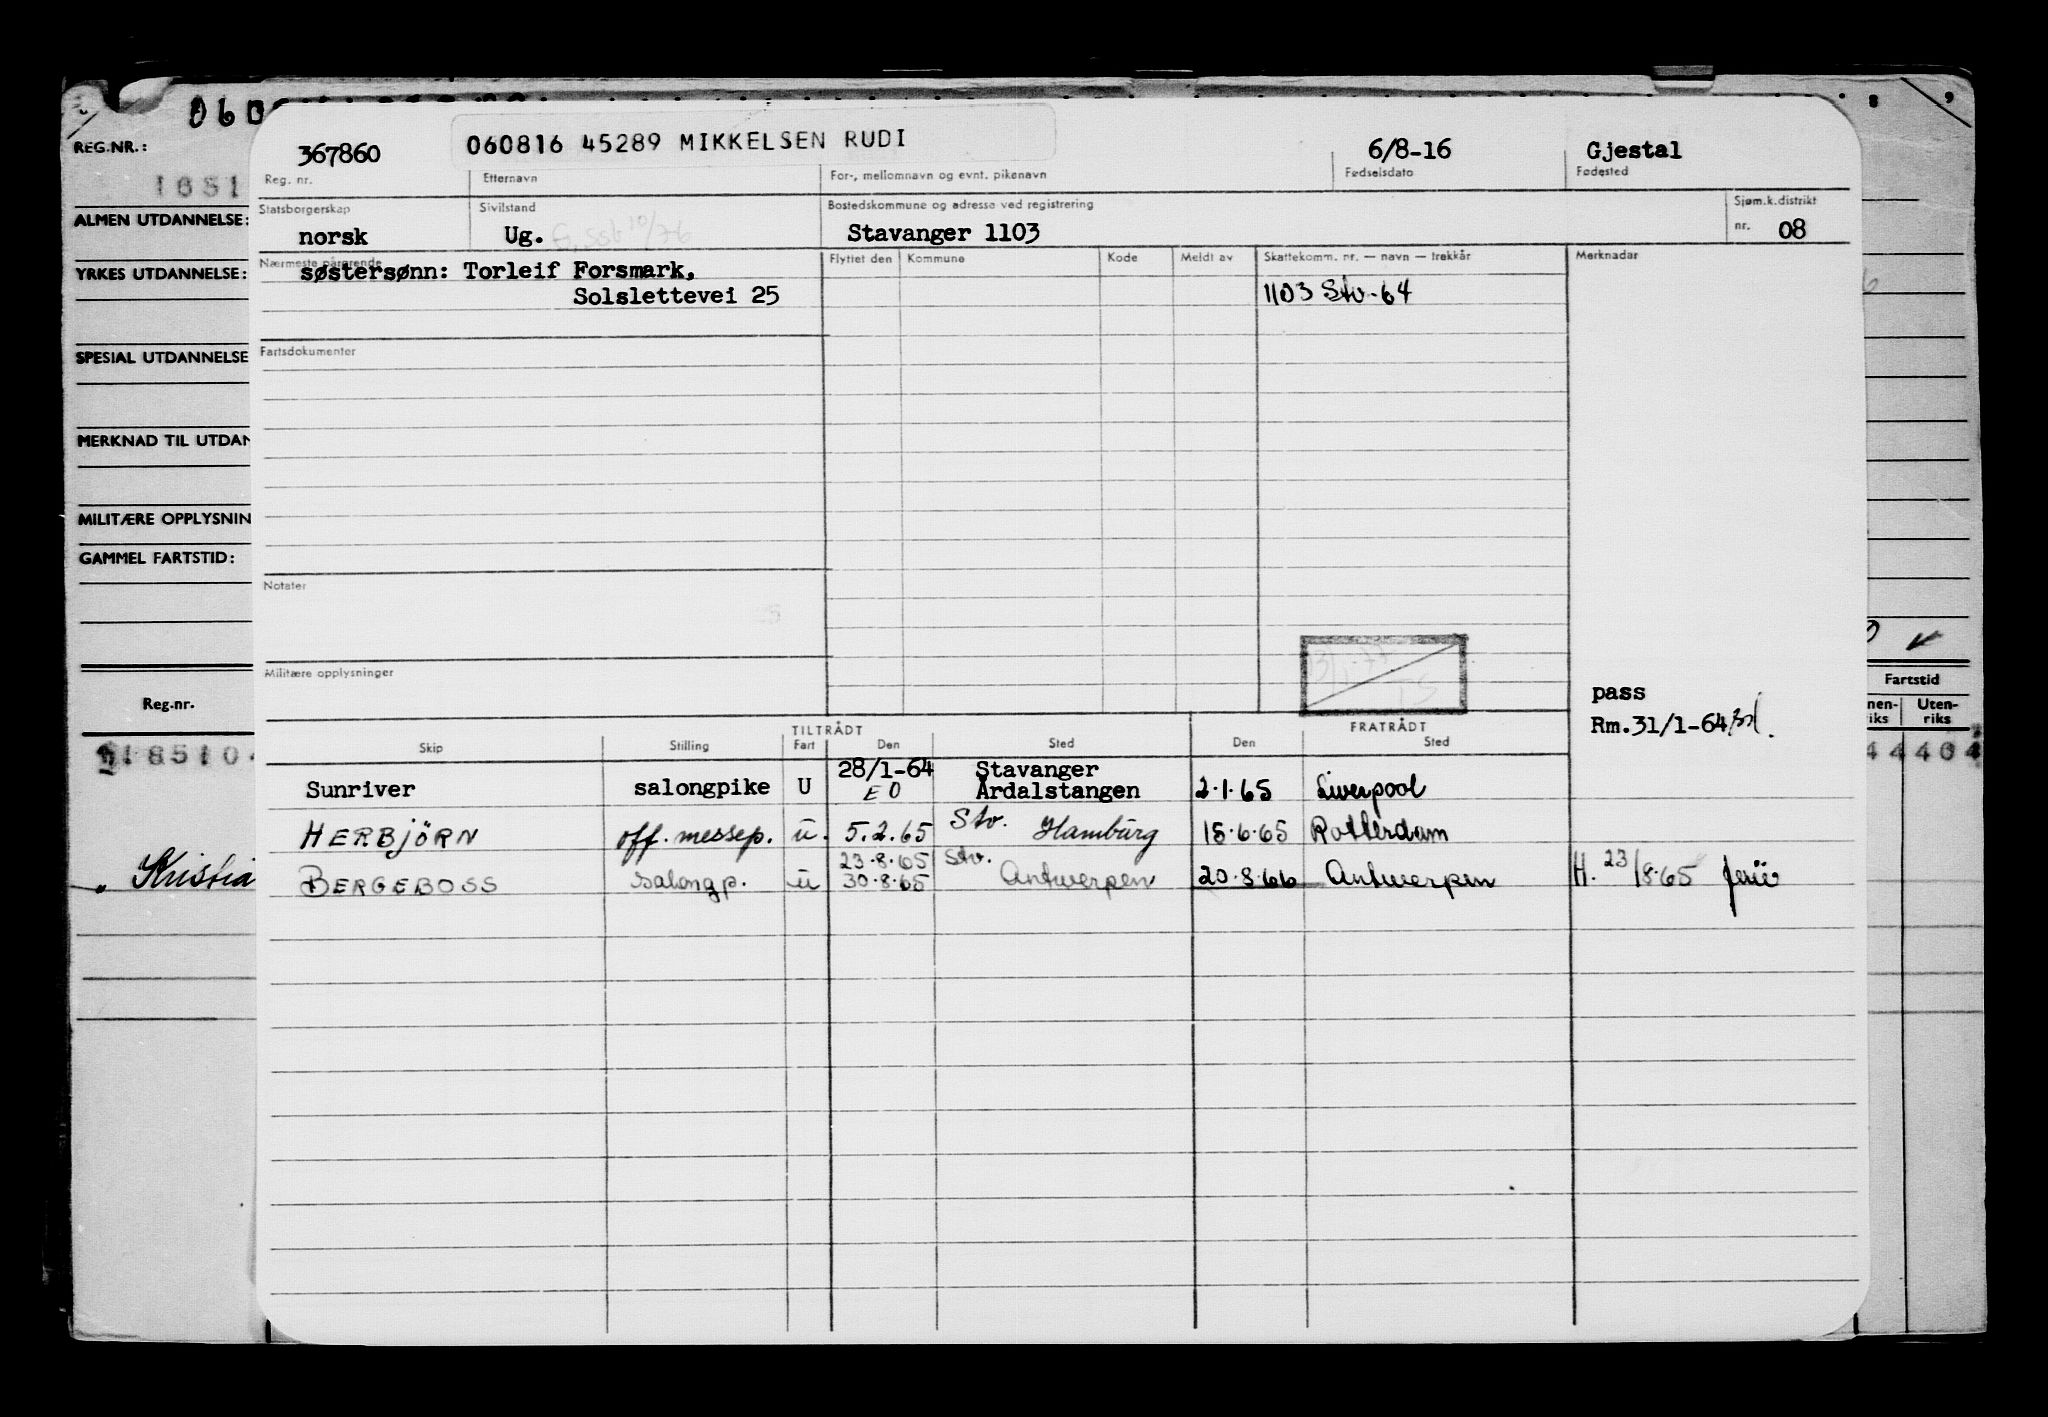 060
REG.NR.:
1651
ALMEN UTDANNELSE:
YRKES UTDANNELSE:
SPESIAL UTDANNELSE
MERKNAD TIL UTDAN
MILITÆRE OPPLYSNIN
GAMMEL FARTSTID:
Reg.nr.
185104
Kristia
367860
060816 45289 MIKKELSEN RUDI
6/8-16
Gjestal
Reg. nr.
Etternavn
For-, mellomnavn og evnt. pikenavn
Fødselsdato
Fødested
Statsborgerskap
Sivilstand
Bostedskommune og adresse ved registrering
Sjøm.k.distrikt
norsk
Ug.
Stavanger 1103
nr. 08
Nærmeste pårørende
søstersønn: Torleif Forsmark,
Solslettevei 25
Flyttet den
Kommune
Kode
Meldt av
Skattekomm. nr. — navn — trekkår
Merknader
1103 Stv-64
Fartsdokumenter
Notater
Militære opplysninger
pass
Rm.31/1-64
TILTRÅDT
FRATRÅDT
Skip
Stilling
Fart
Den
Sted
Den
Sted
Sunriver salongpike U 28/1-64 Stavanger
EO Årdalstangen 2.1.65 Liverpool
HERBJÖRN off. messep. u. 5.2.65 Stv. Hamburg 15.6.65 Rotterdam
23.8.65 Stv.
BERGEBOSS salongp. u 30.8.65 Antwerpen 20.8.66 Antwerpen H. 23/8.65
Fartstid
nen-
riks
Uten-
riks
44 404